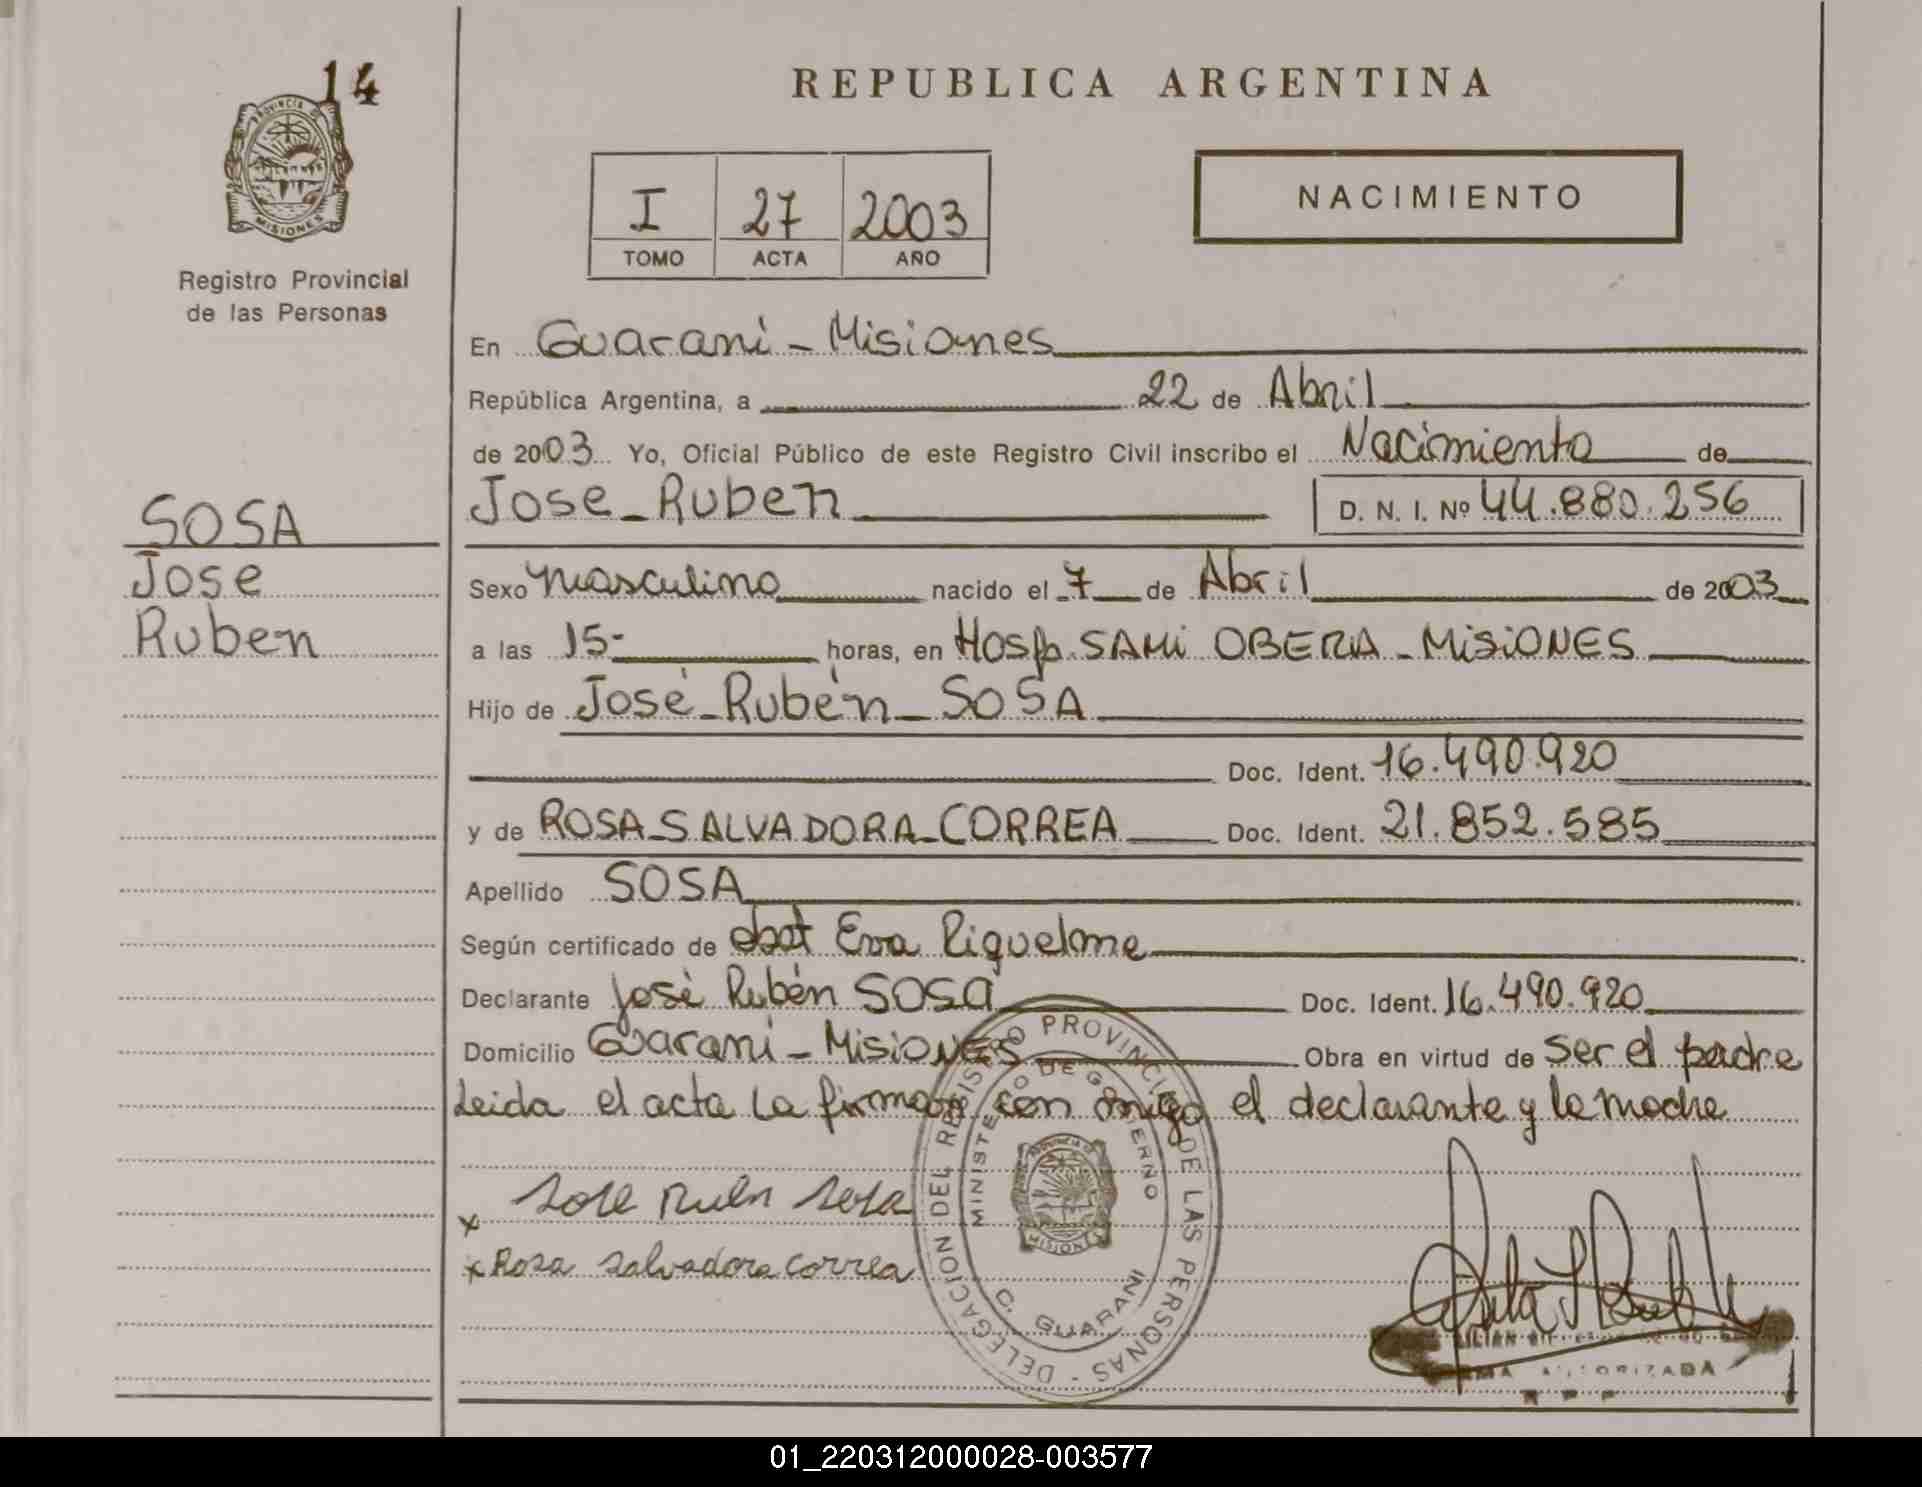 14
PROVINCIA DE
MISIONES
Registro Provincial
de las Personas
SOSA
Jose
Ruben
REPUBLICA ARGENTINA
I 27 2003
TOMO ACTA AÑO
NACIMIENTO
En Guarani - Misiones
República Argentina, a 22 de Abril
de 2003 Yo, Oficial Público de este Registro Civil inscribo el Nacimiento de
Jose - Ruben D. N. I. Nº 44.880.256
Sexo masculino nacido el 7 de Abril de 2003
a las 15- horas, en Hosp. SAMi OBERA - MiSiONES
Hijo de José - Rubén - SOSA
Doc. Ident. 16.490.920
y de ROSA SALVADORA - CORREA Doc. Ident. 21.852.585
Apellido SOSA
Según certificado de obst Eva Riquelme
Declarante José Rubén SOSA Doc. Ident. 16.490.920
Domicilio Guarani - MisioNES Obra en virtud de ser el padre
Leida el acta la firman con migo el declarante y la madre
x Jose Ruben Sosa
x Rosa Salvadora Correa
DELEGACION DEL REGISTRO PROVINCIAL DE LAS PERSONAS -
MINISTERIO DE GOBIERNO
PROVINCIA DE
MISIONES
C. GUARANI
AUTORIZADA
01_220312000028-003577